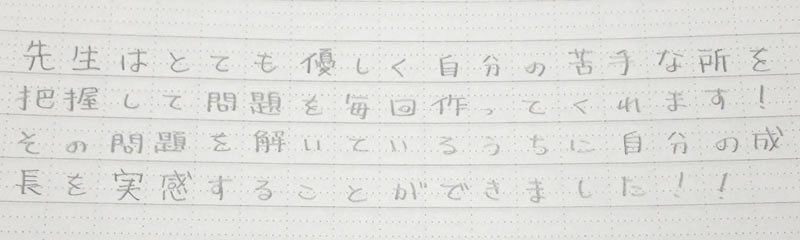 先生はとても優しく自分の苦手な所を
把握して問題を毎回作ってくれます！
その問題を解いているうちに自分の成
長を実感することができました！！